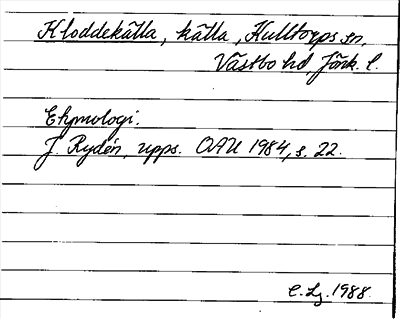 Kloddekälla, källa, Kulltorps sn,
Västbo hd, Jönk. l.
Etymologi.
J. Rydén, upps. OAU 1984, s. 22.
C. Lj. 1988.